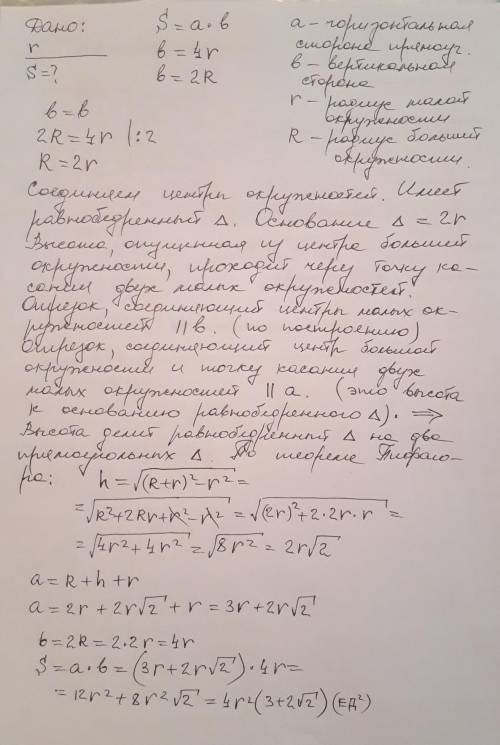 Дано:
r
S=?
S = a · b
b = 4r
b = 2R
a – горизонтальная
сторона прямоуг.
b – вертикальная
сторона
r – радиус малой
окружности
R – радиус большей
окружности.
b = b
2R = 4r |:2
R = 2r
Соединяем центры окружностей. Имеем
равнобедренный Δ. Основание Δ = 2r
Высота, опущенная из центра большей
окружности, проходит через точку ка-
сания двух малых окружностей.
Отрезок, соединяющий центры малых ок-
ружностей ||b. (по построению)
Отрезок, соединяющий центр большой
окружности и точку касания двух
малых окружностей || a. (это высота
к основанию равнобедренного Δ). ⇒
Высота делит равнобедренный Δ на два
прямоугольных Δ. По теореме Пифаго-
ра: h = √((R+r)² – r²) =
= √(R² + 2Rr + r² – r²) = √((2r)² + 2·2r·r) =
= √(4r² + 4r²) = √(8r²) = 2r√2
a = R + h + r
a = 2r + 2r√2 + r = 3r + 2r√2
b = 2R = 2·2r = 4r
S = a · b = (3r + 2r√2) · 4r =
= 12r² + 8r²√2 = 4r²(3 + 2√2) (ЕД²)